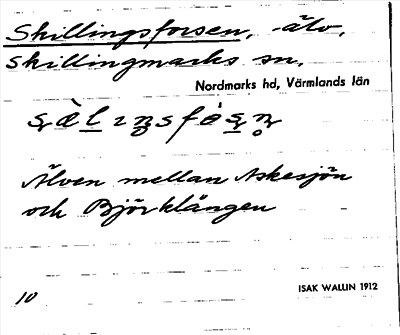 Skillingsforsen, älv,
Skillingmarks sn,
Nordmarks hd, Värmlands län
Älven mellan Askesjön
och Björklången
10
ISAK WALLIN 1912